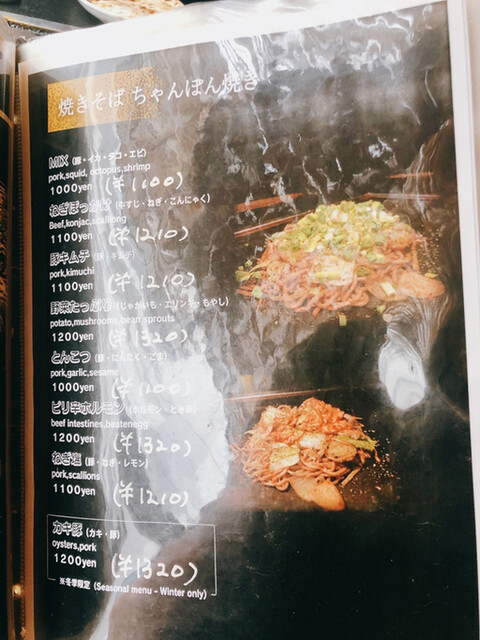 焼きそば ちゃんぽん焼き
MIX (豚・イカ・タコ・エビ)
pork,squid, octopus,shrimp
1000yen (¥1100)
ねぎぼっかけ (牛すじ・ねぎ・こんにゃく)
Beef,konjac,scallions
1100yen (¥1210)
豚キムチ (豚・キムチ)
pork,kimuchi
1100yen (¥1210)
野菜たっぷり (じゃがいも・エリンギ・もやし)
potato,mushrooms,bean sprouts
1200yen (¥1320)
とんこつ (豚・にんにく・ごま)
pork,garlic,sesame
1000yen (¥1100)
ピリ辛ホルモン (ホルモン・とき卵)
beef intestines,beatenegg
1200yen (¥1320)
ねぎ塩 (豚・ねぎ・レモン)
pork,scallions
1100yen (¥1210)
カキ豚 (カキ・豚)
oysters,pork
1200yen (¥1320)
※冬季限定 (Seasonal menu - Winter only)